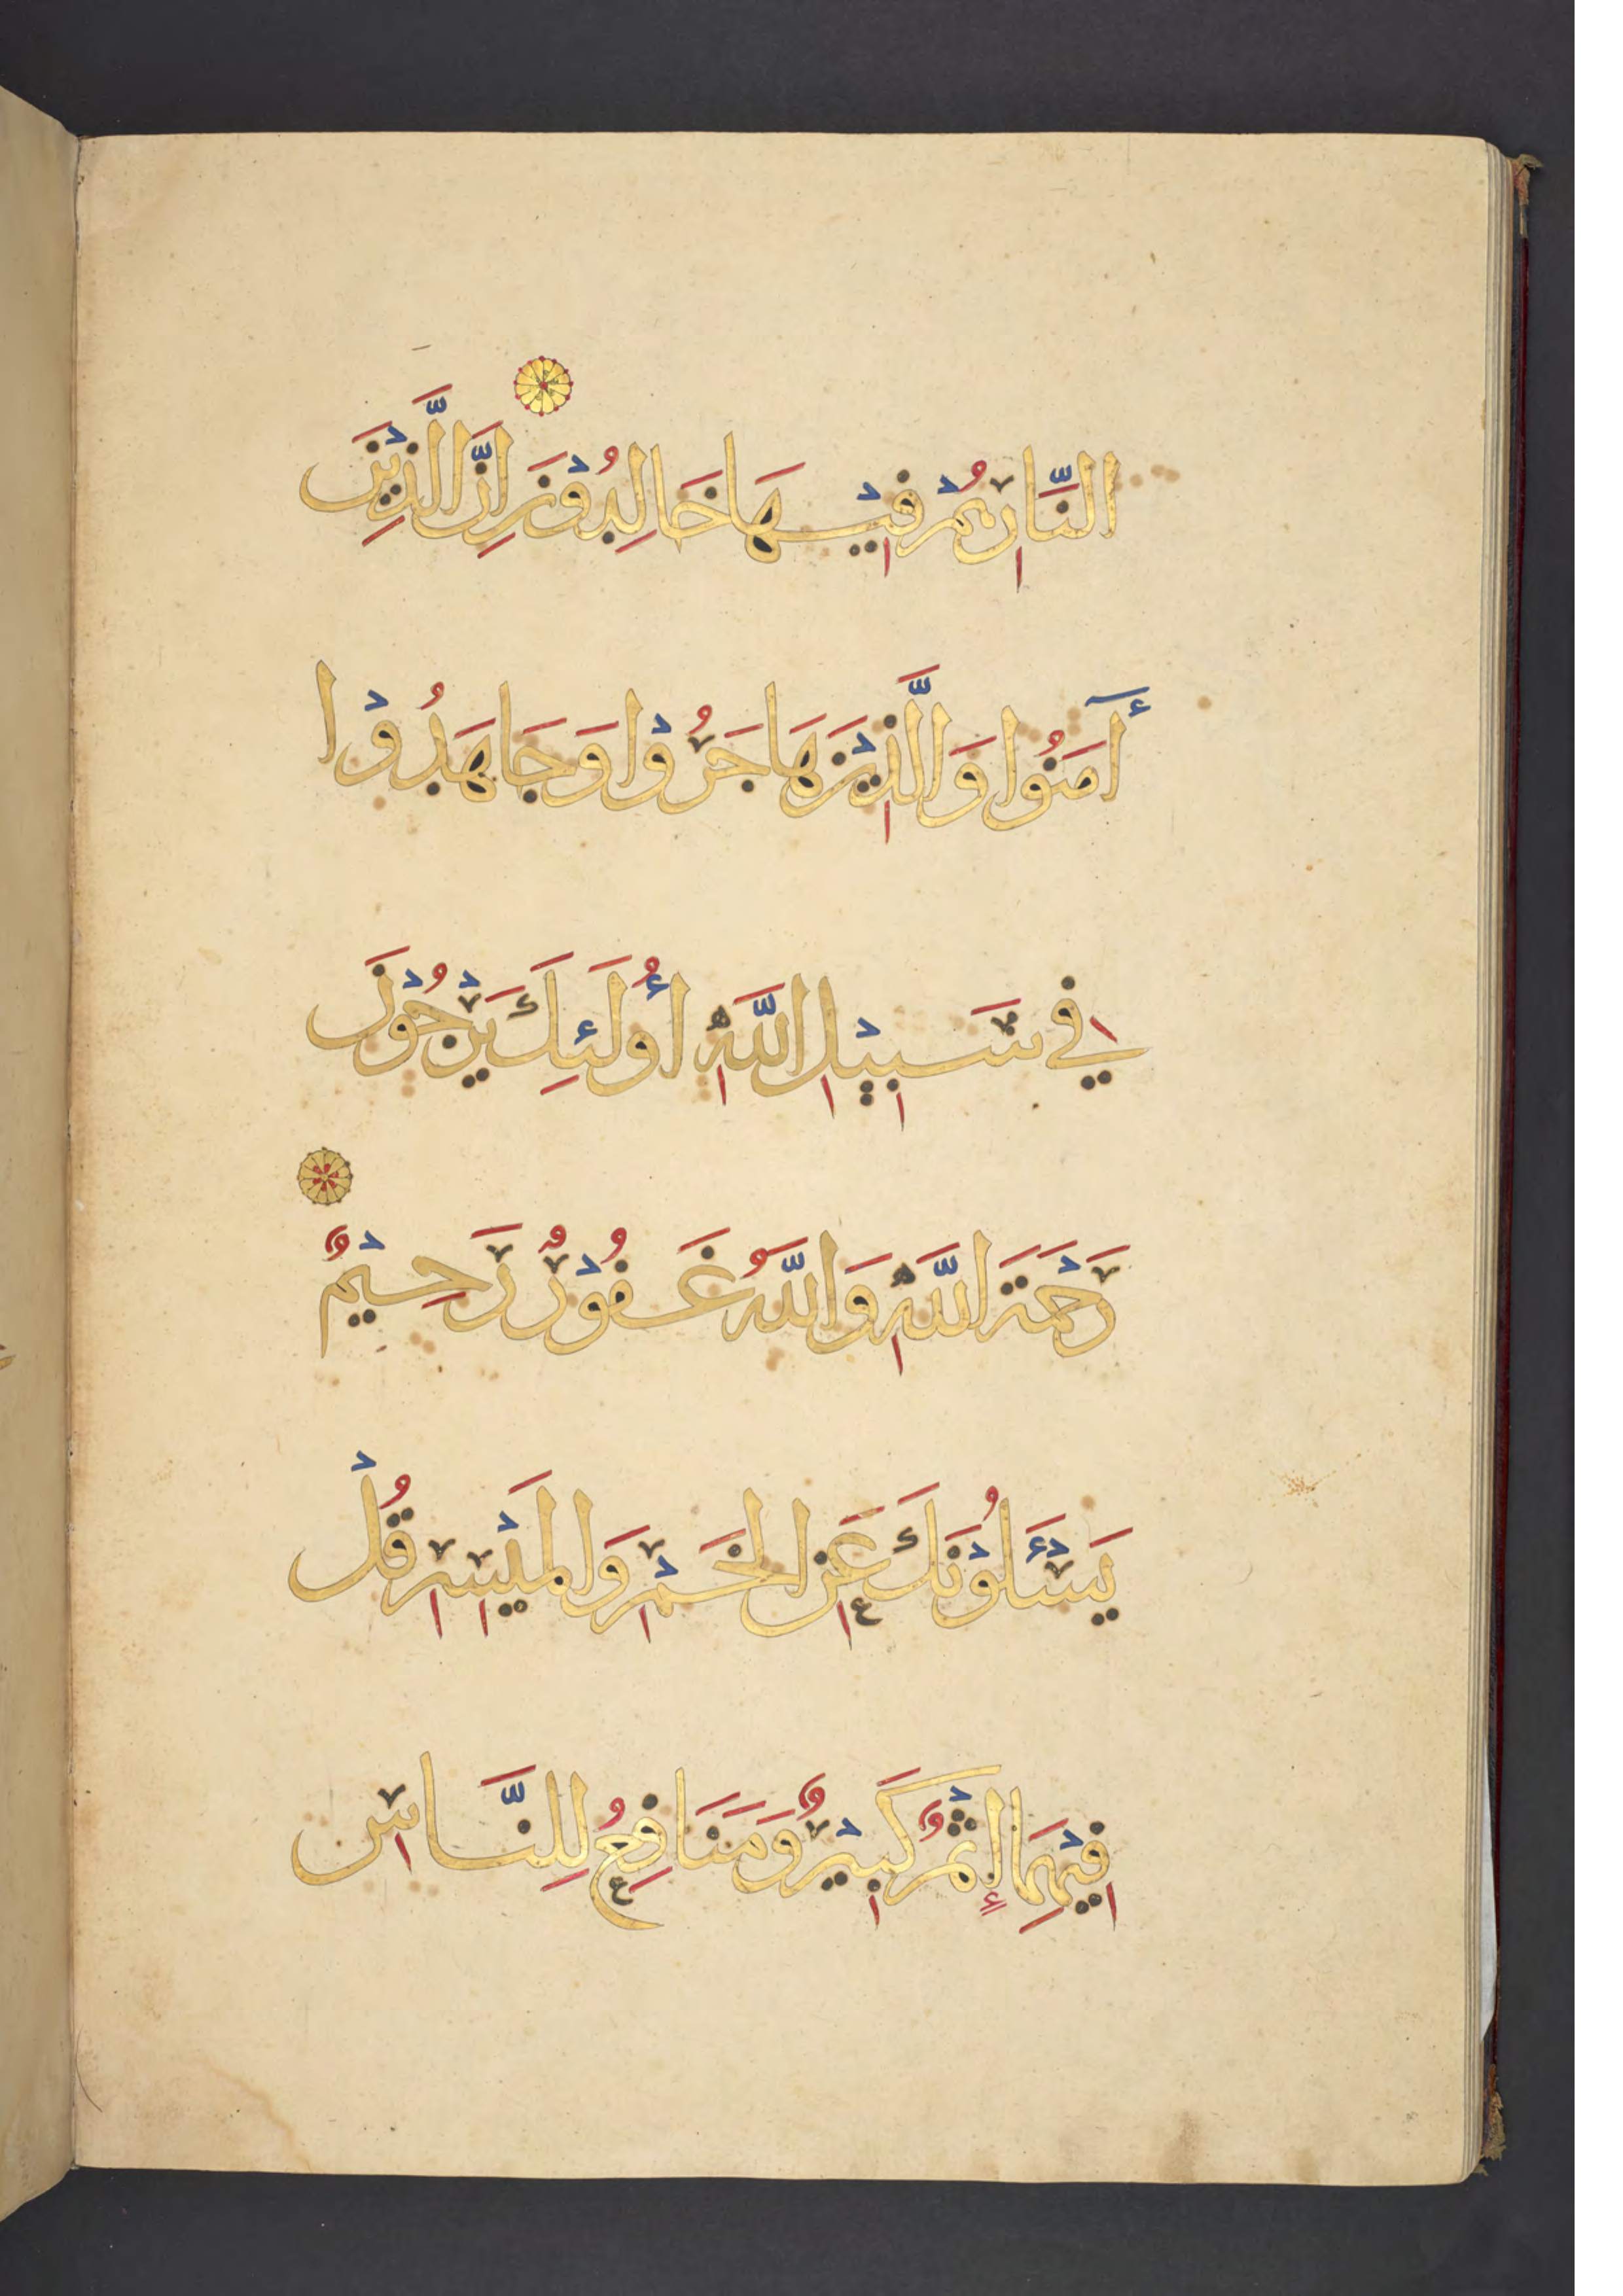 النَّارِ هُمْ فِيْهَا خَالِدُوْنَ اِنَّ الَّذِيْنَ
أٓمَنُوا وَالَّذِيْنَ هَاجَرُوْا وَجَاهَدُوْا
فِي سَبِيْلِ اللَّهِ أُولَئِكَ يَرْجُوْنَ
رَحْمَتَ اللَّهِ وَاللَّهُ غَفُوْرٌ رَحِيْمٌ
يَسْئَلُوْنَكَ عَنِ الخَمْرِ وَالمَيْسِرِ قُلْ
فِيْهِمَا إِثْمٌ كَبِيْرٌ وَمَنَافِعُ لِلنَّاسِ